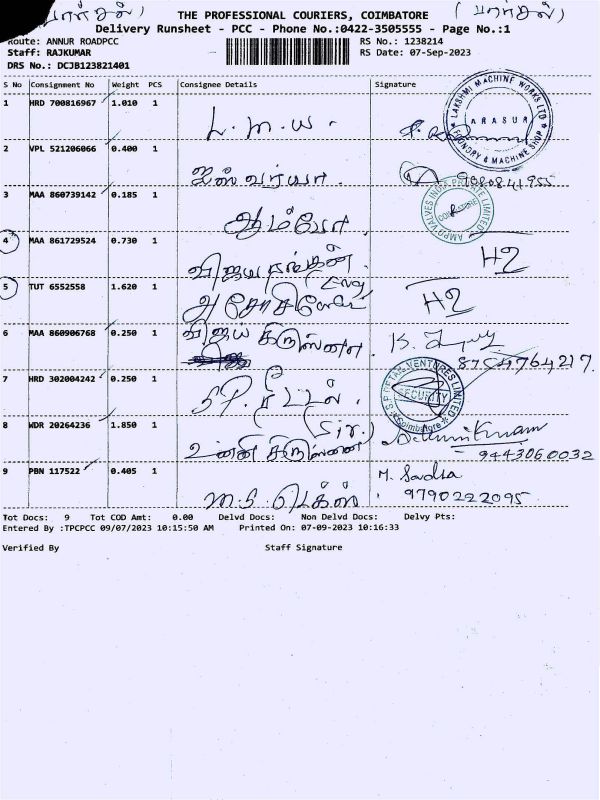 (பார்சல்) THE PROFESSIONAL COURIERS, COIMBATORE (பார்சல்)
Delivery Runsheet - PCC - Phone No.:0422-3505555 - Page No.:1
Route: ANNUR ROADPCC RS No.: 1238214
Staff: RAJKUMAR RS Date: 07-Sep-2023
DRS No.: DCJB123821401
S No Consignment No Weight PCS Consignee Details Signature
1 HRD 700816967 1.010 1 L.M.W. LAKSHMI MACHINE WORKS LTD ARASUR FOUNDRY & MACHINE SHOP
2 VPL 521206066 0.400 1 ஐஸ்வர்யா.
3 MAA 860739142 0.185 1 ஆம்போ. AMPO VALVES INDIA PRIVATE LIMITED COIMBATORE
4 MAA 861729524 0.730 1 H2
5 TUT 6552558 1.620 1 H2
6 MAA 860906768 0.250 1 விஜய் கிருஷ்ணன். 8754764217.
7 HRD 302004242 0.250 1 SP. ரீட்டல். VENTURES LIMITED SECURITY Coimbatore
8 WDR 20264236 1.850 1 (Sir.) உன்னி கிருஷ்ணன் 9443060032
9 PBN 117522 0.405 1 M.S டெக்ஸ். M. Sadha 9790222095.
Tot Docs: 9 Tot COD Amt: 0.00 Delvd Docs: Non Delvd Docs: Delvy Pts:
Entered By :TPCPCC 09/07/2023 10:15:50 AM Printed On: 07-09-2023 10:16:33
Verified By Staff Signature